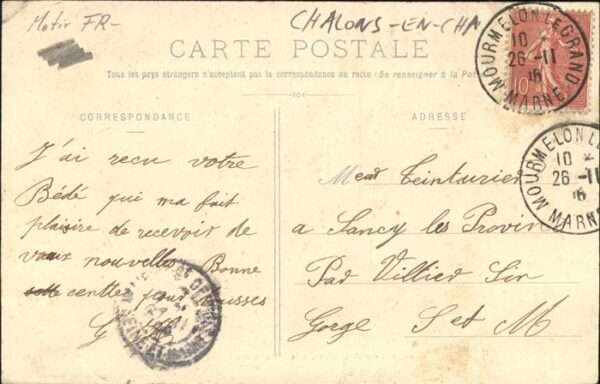 Motif FR-
CHALONS-EN-CHA
CARTE POSTALE
Tous les pays étrangers n'acceptent pas la correspondance au recto (Se renseigner à la Poste
CORRESPONDANCE
J'ai recu votre
Bébé qui ma fait
plaisire de recevoir de
vaux nouvelles Bonne
centte pour
G
ADRESSE
Mead Teinturier
a Sancy les Provins
Par Villier Sin
Gorge S et M
MOURMELON LE GRAND
10
26 -11
15
MARNE
MOURMELON LE
10
26 -11
15
MARNE
10